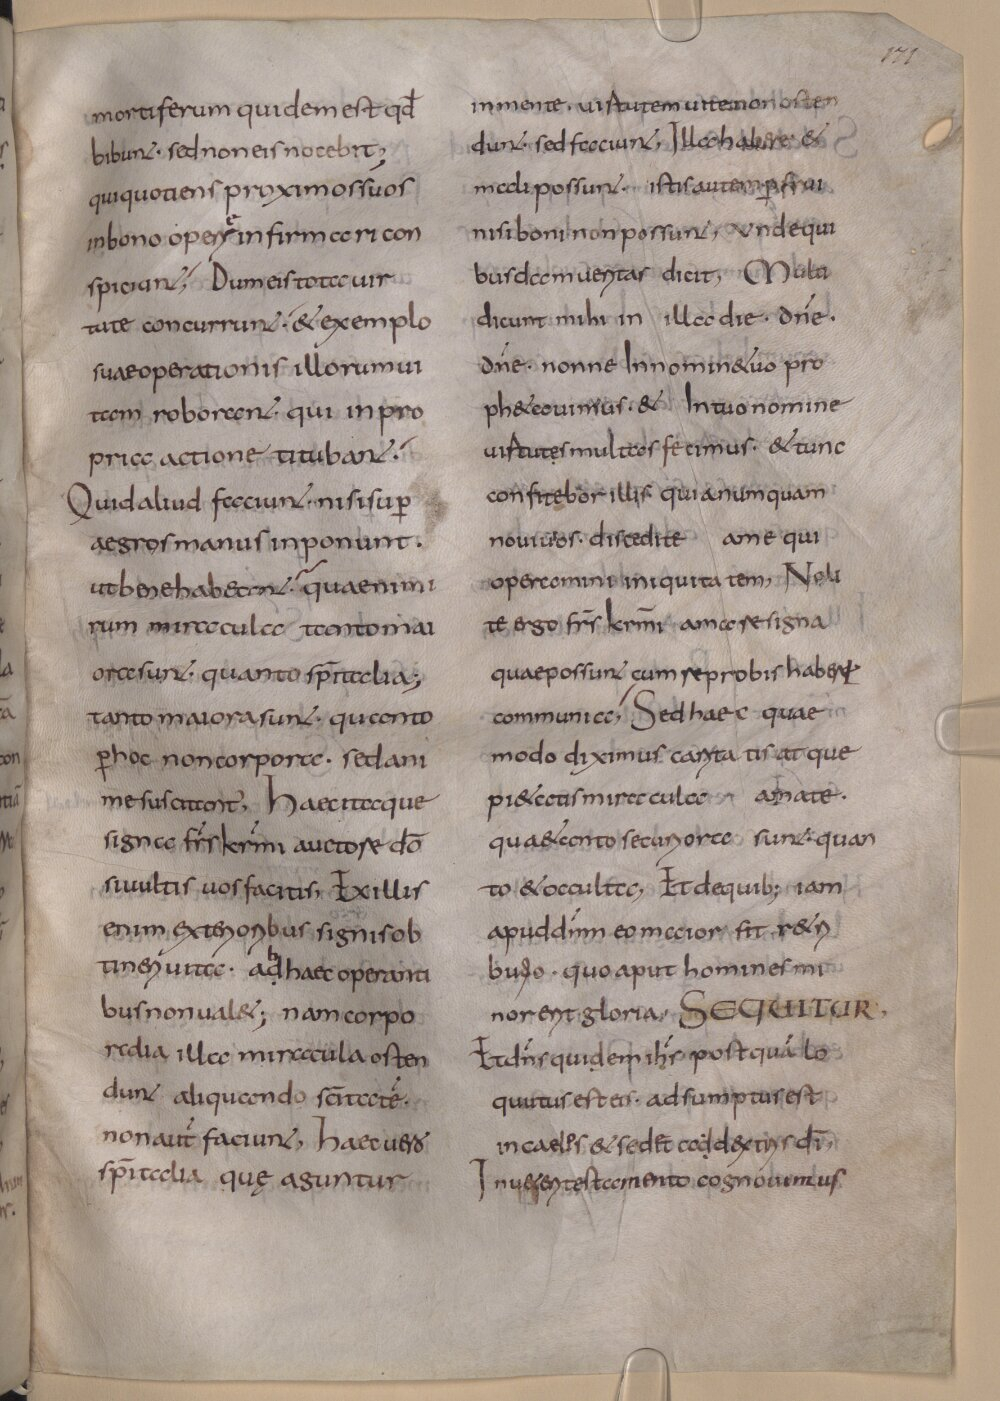 171
mortiferum quidem est qđ
bibunt. sed non eis nocebit;
qui quotiens proximos suos
in bono opere infirmari con
spiciunt; Dum eis tota uir
tute concurrunt. & exemplo
suae operationis illorum ui
tam roborant. qui in pro
pria actione titubant.
Quid aliud faciunt. nisi sup̄
aegros manus inponunt.
ut bene habeant. quae nimi
rum miracula tanto mai
ora sunt. quanto sp̄italia;
tanto maiora sunt. quanto
p̄ hoc non corpora. sed ani
me suscitant; Haec itaque
signa fr̄s kr̄mi auctore dō
si uultis uos facitis; Ex illis
enim exterioribus signis ob
tineri uita. ab haec operanti
bus non ualet; nam corpo
ralia illa miracula osten
dunt aliquando sc̄itatē.
non aut̄ faciunt; Haec uero
sp̄italia quę aguntur
in mente. uirtutem uitę non osten
dunt. sed faciunt; Illa habere. &
mali possunt. istis autem p̄frui
nisi boni non possunt; Vnde qui
busdam ueritas dicit; Multi
dicunt mihi in illa die. dn̄e.
dn̄e. nonne In nomine tuo pro
phetauimus. & In tuo nomine
uirtutes multas fecimus. & tunc
confitebor illis quia numquam
noui uos. discedite a me qui
operamini iniquitatem; Noli
te ergo fr̄s kr̄mi amare signa
quae possunt cum reprobis haberi
communia; Sed haec quae
modo diximus caritatis atque
pietatis miracula amate.
quae tanto securiora sunt. quan
to & occulta; Et de quib; iam
apud dn̄m eo maior fit retri
butio. quo aput homines mi
nor ent gloria; SEQUITUR.
Et dn̄s quidem ihs̄ postquā lo
quutus est eis. adsumptus est
in caelis & sedet ad dextris dī;
In ueteri testamento cognouimus